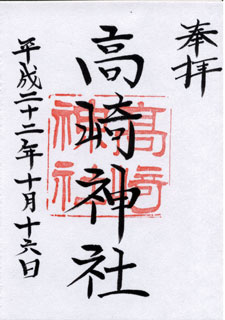 奉拝
高崎神社
髙﨑
神社
平成二十二年十月十六日